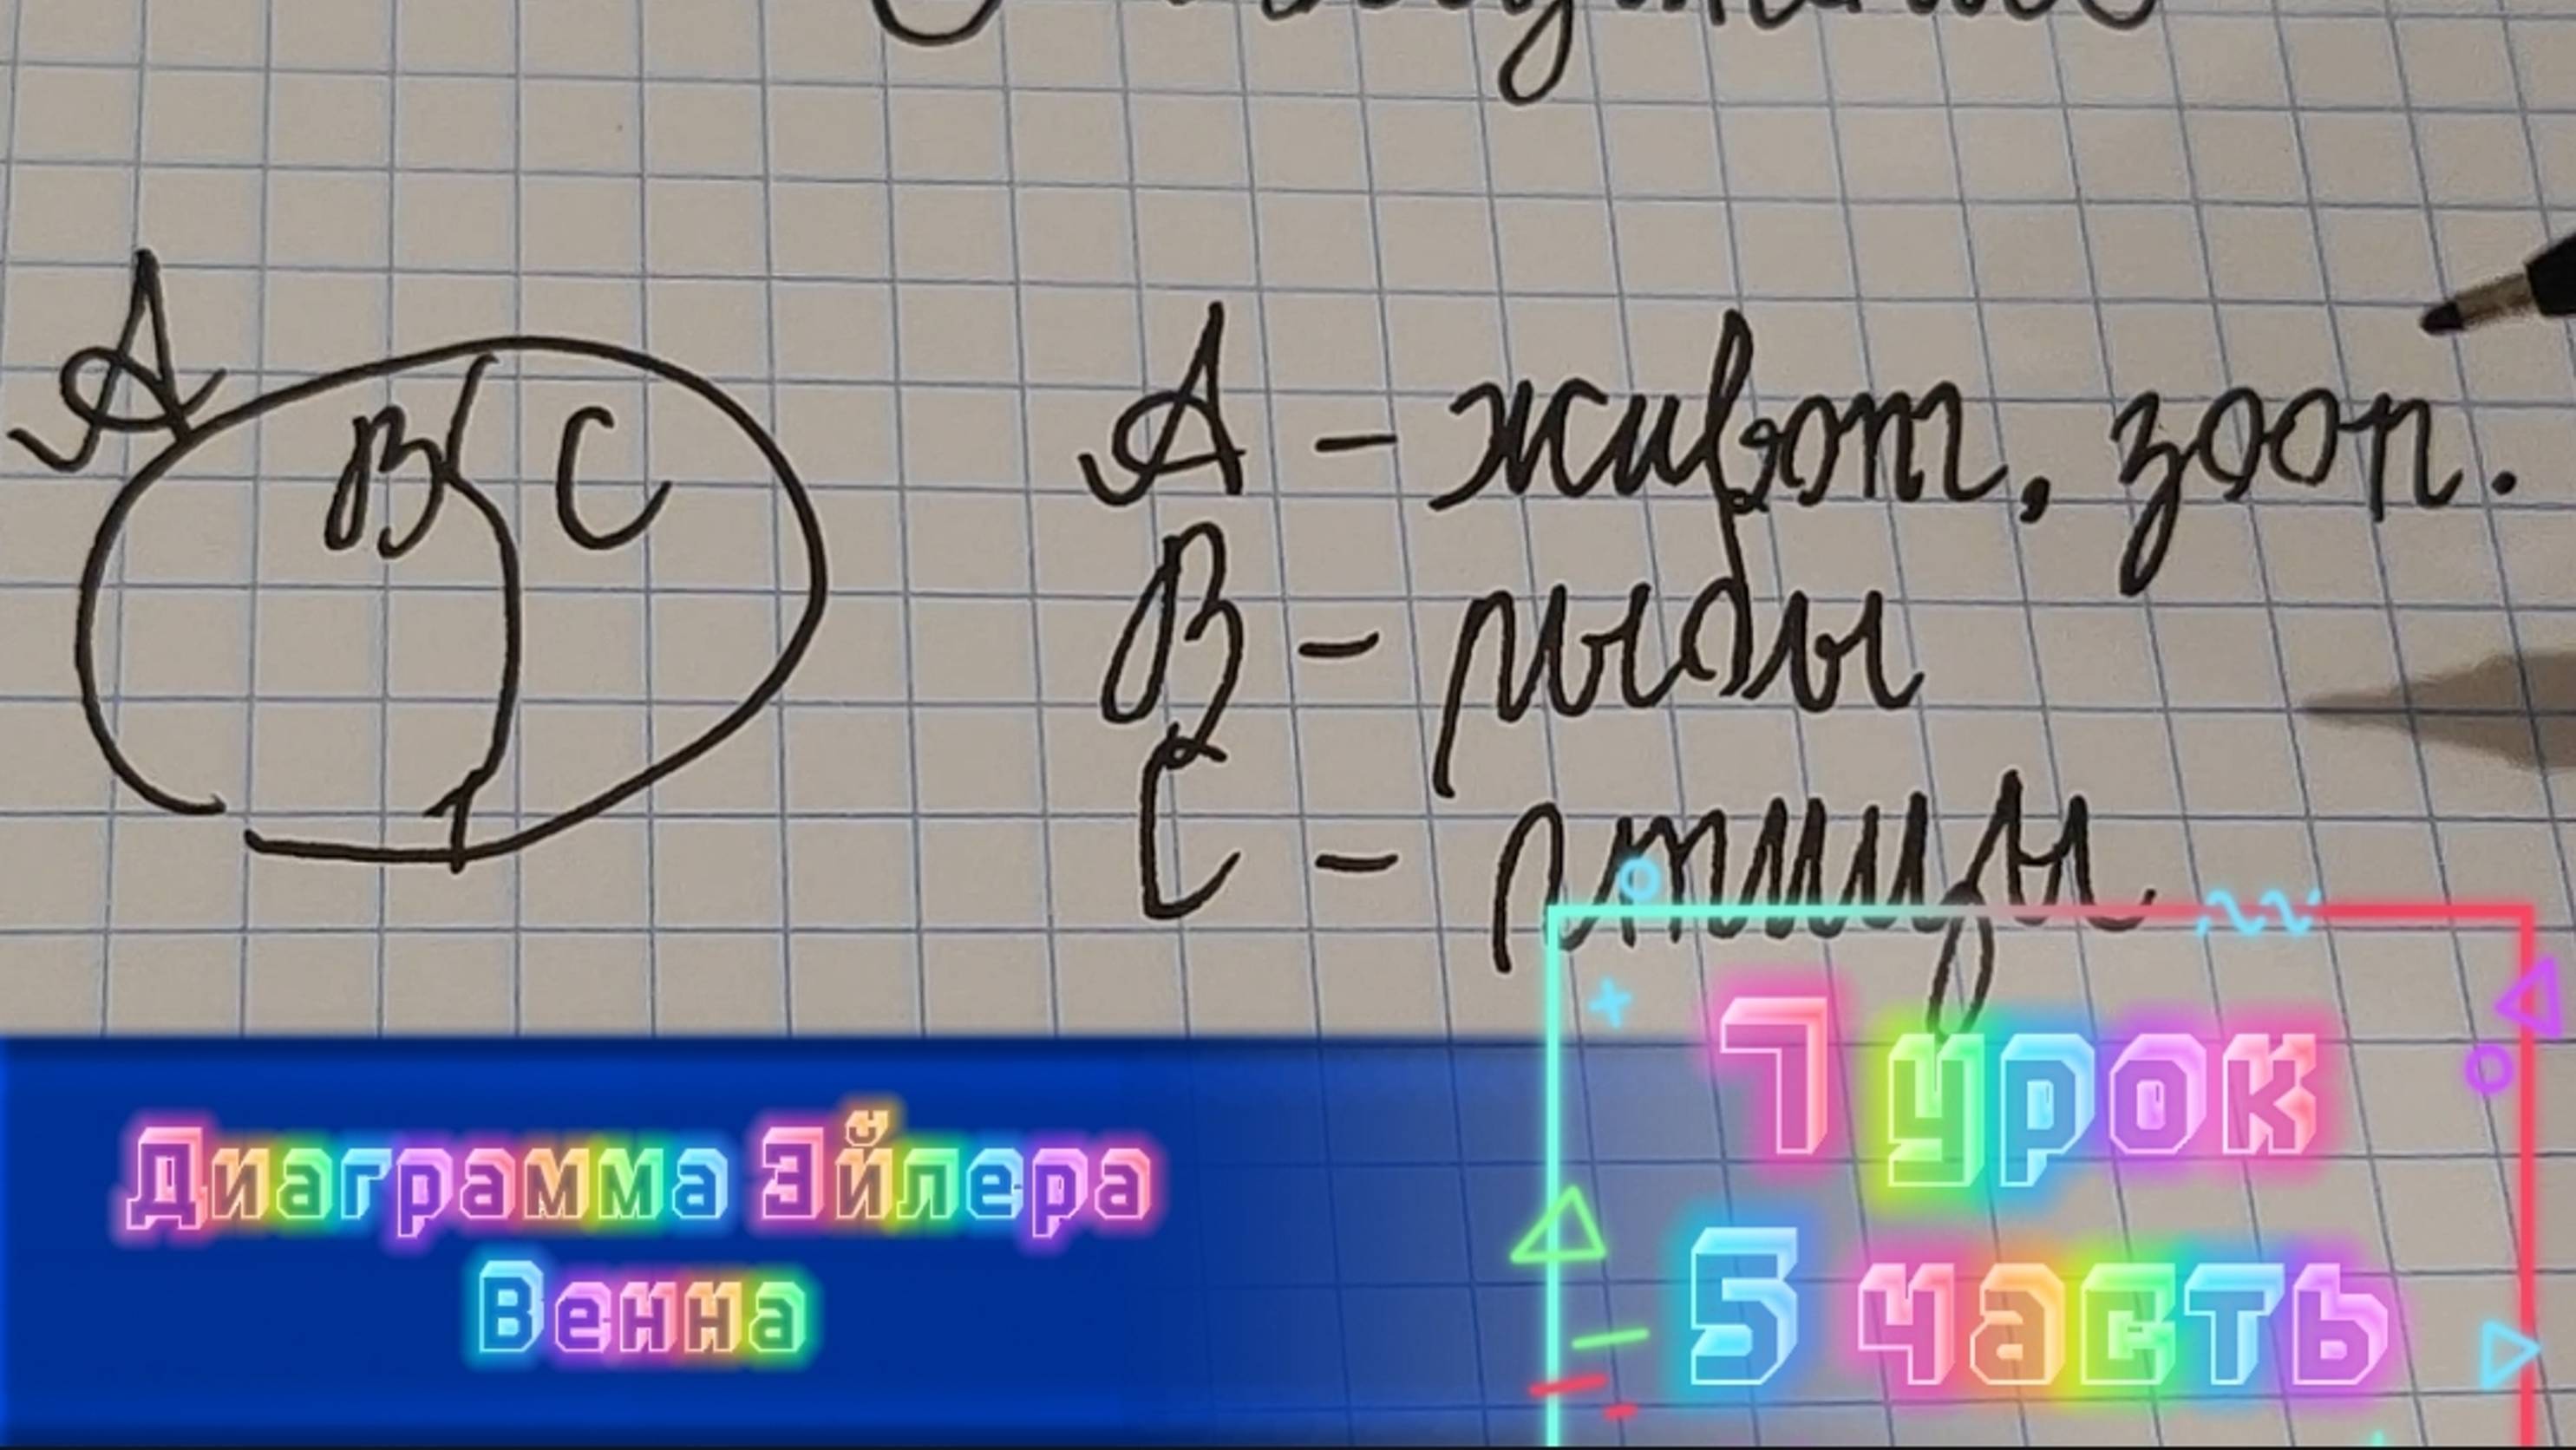 A
B C
A - живот, зооп.
B - рыбы
C - птицы
7 урок
5 часть
Диаграмма Эйлера
Венна